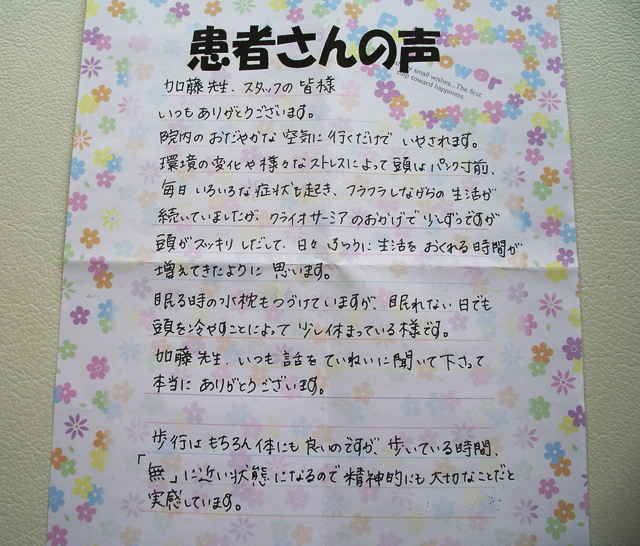 患者さんの声
加藤先生、スタッフの皆様
いつもありがとうございます。
院内のおだやかな空気に行くだけでいやされます。
環境の変化や様々なストレスによって頭はパンク寸前、
毎日いろいろな症状も起き、フラフラしながらの生活が
続いていましたが、クライオサーミアのおかげで少しずつですが
頭がスッキリしだして、日々ゆっくりに生活をおくれる時間が
増えてきたように思います。
眠る時の水枕もつづけていますが、眠れない日でも
頭を冷やすことによって少し休まっている様です。
加藤先生、いつも話をていねいに聞いて下さって
本当にありがとうございます。
歩行はもちろん体にも良いのですが、歩いている時間、
「無」に近い状態になるので精神的にも大切なことだと
実感しています。
small wishes... The first
step toward happiness.